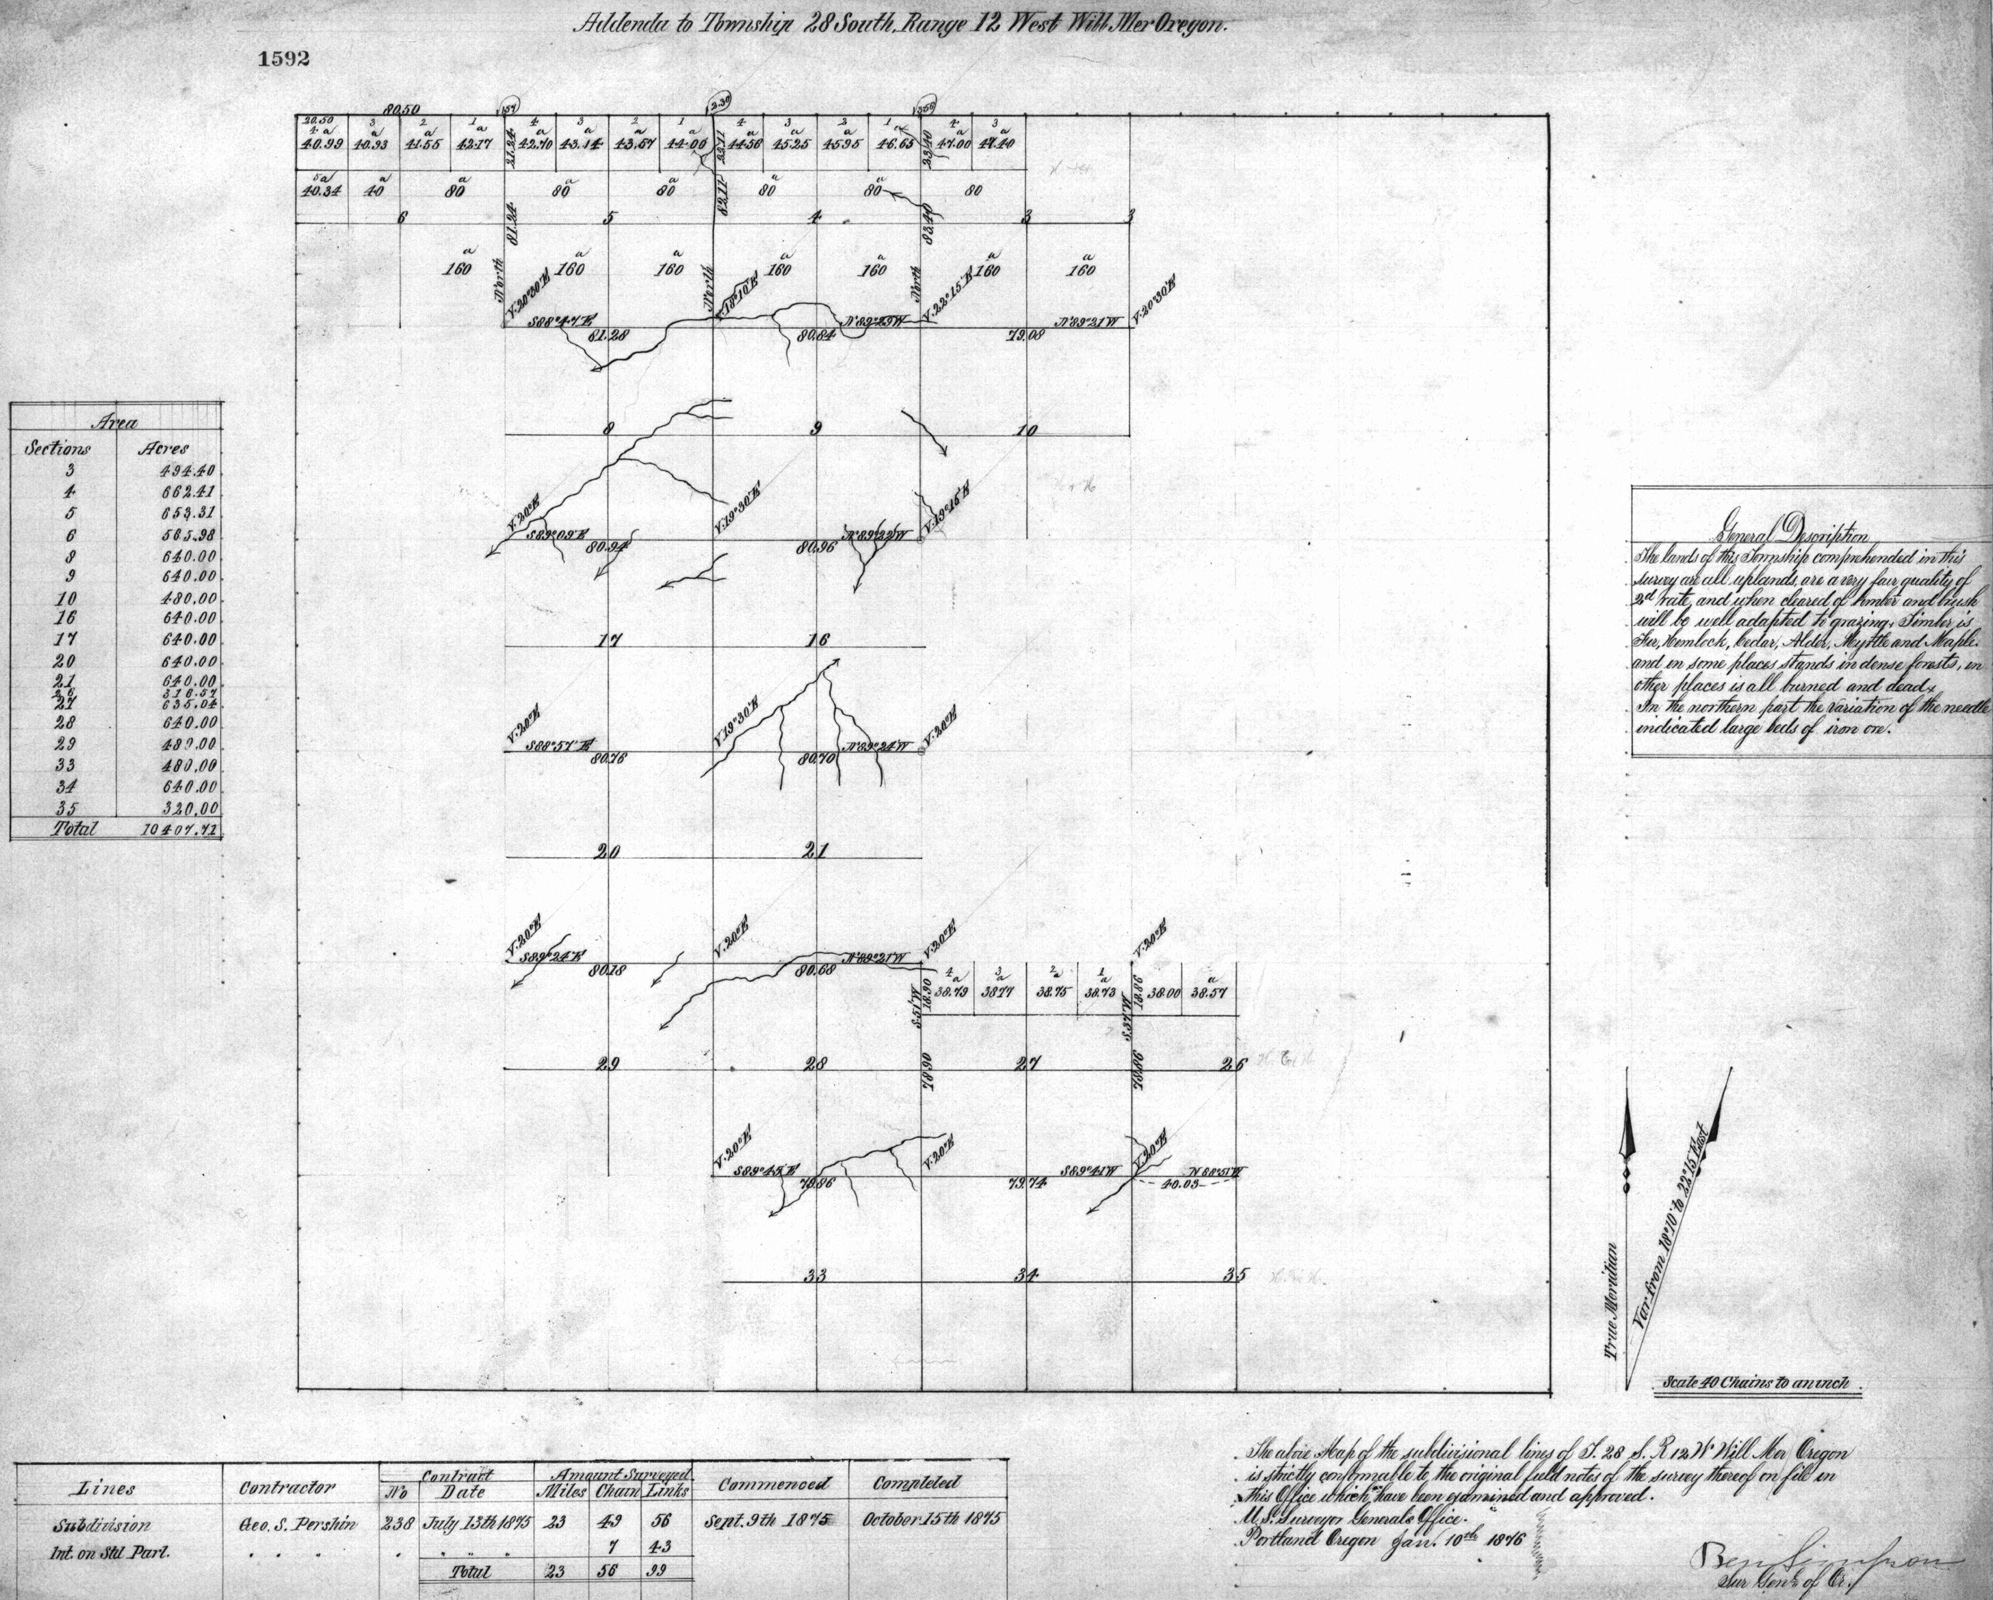 Addenda to Township 28 South, Range 12 West Will Mer Oregon.
1592
80.50
154 2.30 350
20.50
4 3 2 1 4 3 2 1 4 3 2 1 4 3
a a a a a a a a a a a a a a
40.99 40.93 41.55 42.17 21.24 42.70 43.14 43.57 44.00 22.11 44.56 45.25 45.95 46.65 23.40 47.00 47.40
5 a a a a a a a
40.34 40 80 80 80 80 80 80
81.24 82.11 83.40
6 5 4 3 3
a a a a a a a
160 160 160 160 160 160 160
North North North
V.20°30'E V.18°10'E V.22°15'E V.20°30'E
S88°47'E N.89°29W N89°21W
81.28 80.84 79.08
8 9 10
V.20°E V.19°30'E V.19°15'E
S89°09'E N.89°22W
80.94 80.96
17 16
V.20°E V.19°30'E V.20°E
S88°57'E N.89°24W
80.76 80.70
20 21
V.20°E V.20°E V.20°E V.20°E
S89°24'E N.89°21W
80.18 80.68
4 3 2 1
a a a a a
38.79 38.77 38.75 38.73 38.00 38.57
S.51'W 18.90 S.37'W 18.86
78.90 78.86
29 28 27 26
V.20°E V.20°E V.20°E
S89°45'E S89°41W N 88°51W
79.86 79.74 40.03
33 34 35
Area
Sections Acres
3 494.40
4 662.41
5 653.31
6 565.98
8 640.00
9 640.00
10 480.00
16 640.00
17 640.00
20 640.00
21 640.00
26 316.57
27 635.04
28 640.00
29 480.00
33 480.00
34 640.00
35 320.00
Total 10407.71
General Description
The lands of this Township comprehended in this
survey are all uplands, are a very fair quality of
2d rate, and when cleared of timber and brush
will be well adapted to grazing. Timber is
Fir, Hemlock, Cedar, Alder, Myrtle and Maple.
and in some places stands in dense forests, in
other places is all burned and dead.
In the northern part the variation of the needle
indicated large beds of iron ore.
True Meridian
Var. from 18°10' to 22°15 East
Scale 40 Chains to an inch
Lines Contractor Contract Amount Surveyed Commenced Completed
No Date Miles Chain Links
Subdivision Geo. S. Pershin 238 July 13th 1875 23 49 56 Sept. 9th 1875 October 15th 1875
Int. on Std Parl. " " " " " " " 7 43
Total 23 56 99
The above Map of the subdivisional lines of T. 28 S. R 12 W Will Mer Oregon
is strictly conformable to the original field notes of the survey thereof on file in
this Office which have been examined and approved.
U.S. Surveyor Generals Office.
Portland Oregon Jan. 10th 1876
Ben Simpson
Sur Genl of Or.